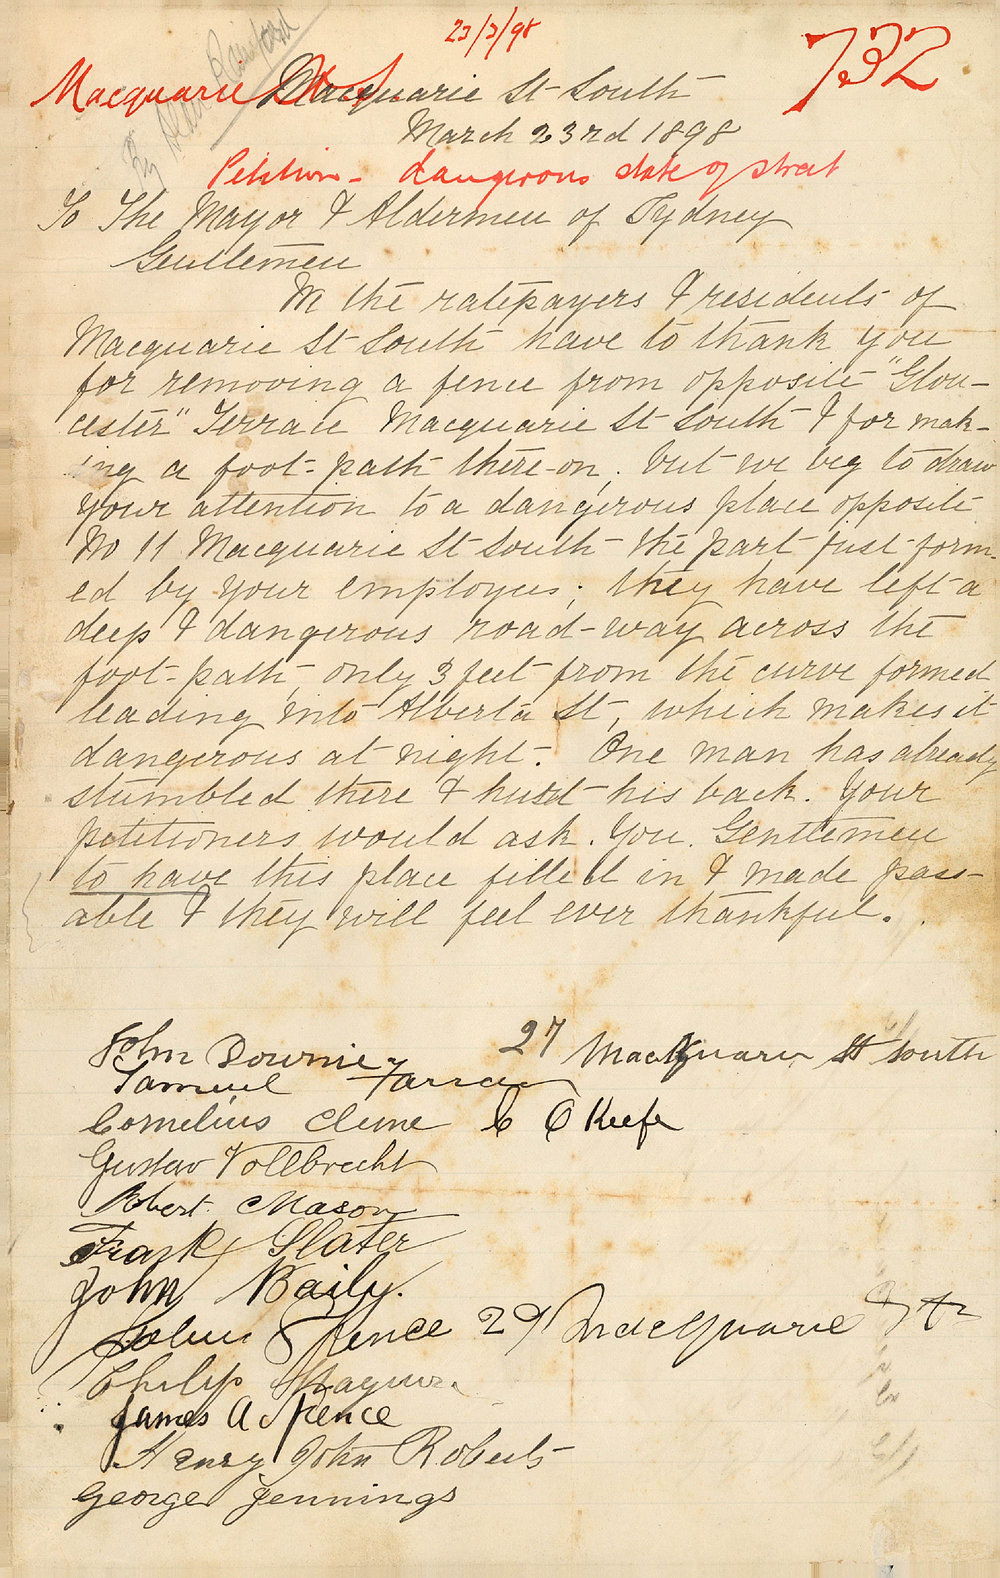 23/3/98
732
Macquarie St S
Macquarie St South
March 23rd 1898
Petition - dangerous state of street
To The Mayor & Aldermen of Sydney
Gentlemen
We the ratepayers & residents of
Macquarie St South have to thank you
for removing a fence from opposite "Glou-
cester" Terrace Macquarie St South & for mak-
ing a foot-path there-on, but we beg to draw
your attention to a dangerous place opposite
No 11 Macquarie St South the part just form-
ed by your employees; they have left a
deep & dangerous road-way across the
foot-path, only 3 feet from the curve formed
leading into Alberta St, which makes it
dangerous at night. One man has already
stumbled there & hurt his back. Your
petitioners would ask. You. Gentlemen
to have this place filled in & made pass-
able & they will feel ever thankful.
John Downie 27 Macquarie St South
Samuel
Cornelius Clune C O Keefe
Gustav Vollbrecht
Robert Mason
Frank Slater
John Baily.
John Spence 29 Macquarie St
Philip
James A Spence
Henry John Roberts
George Jennings